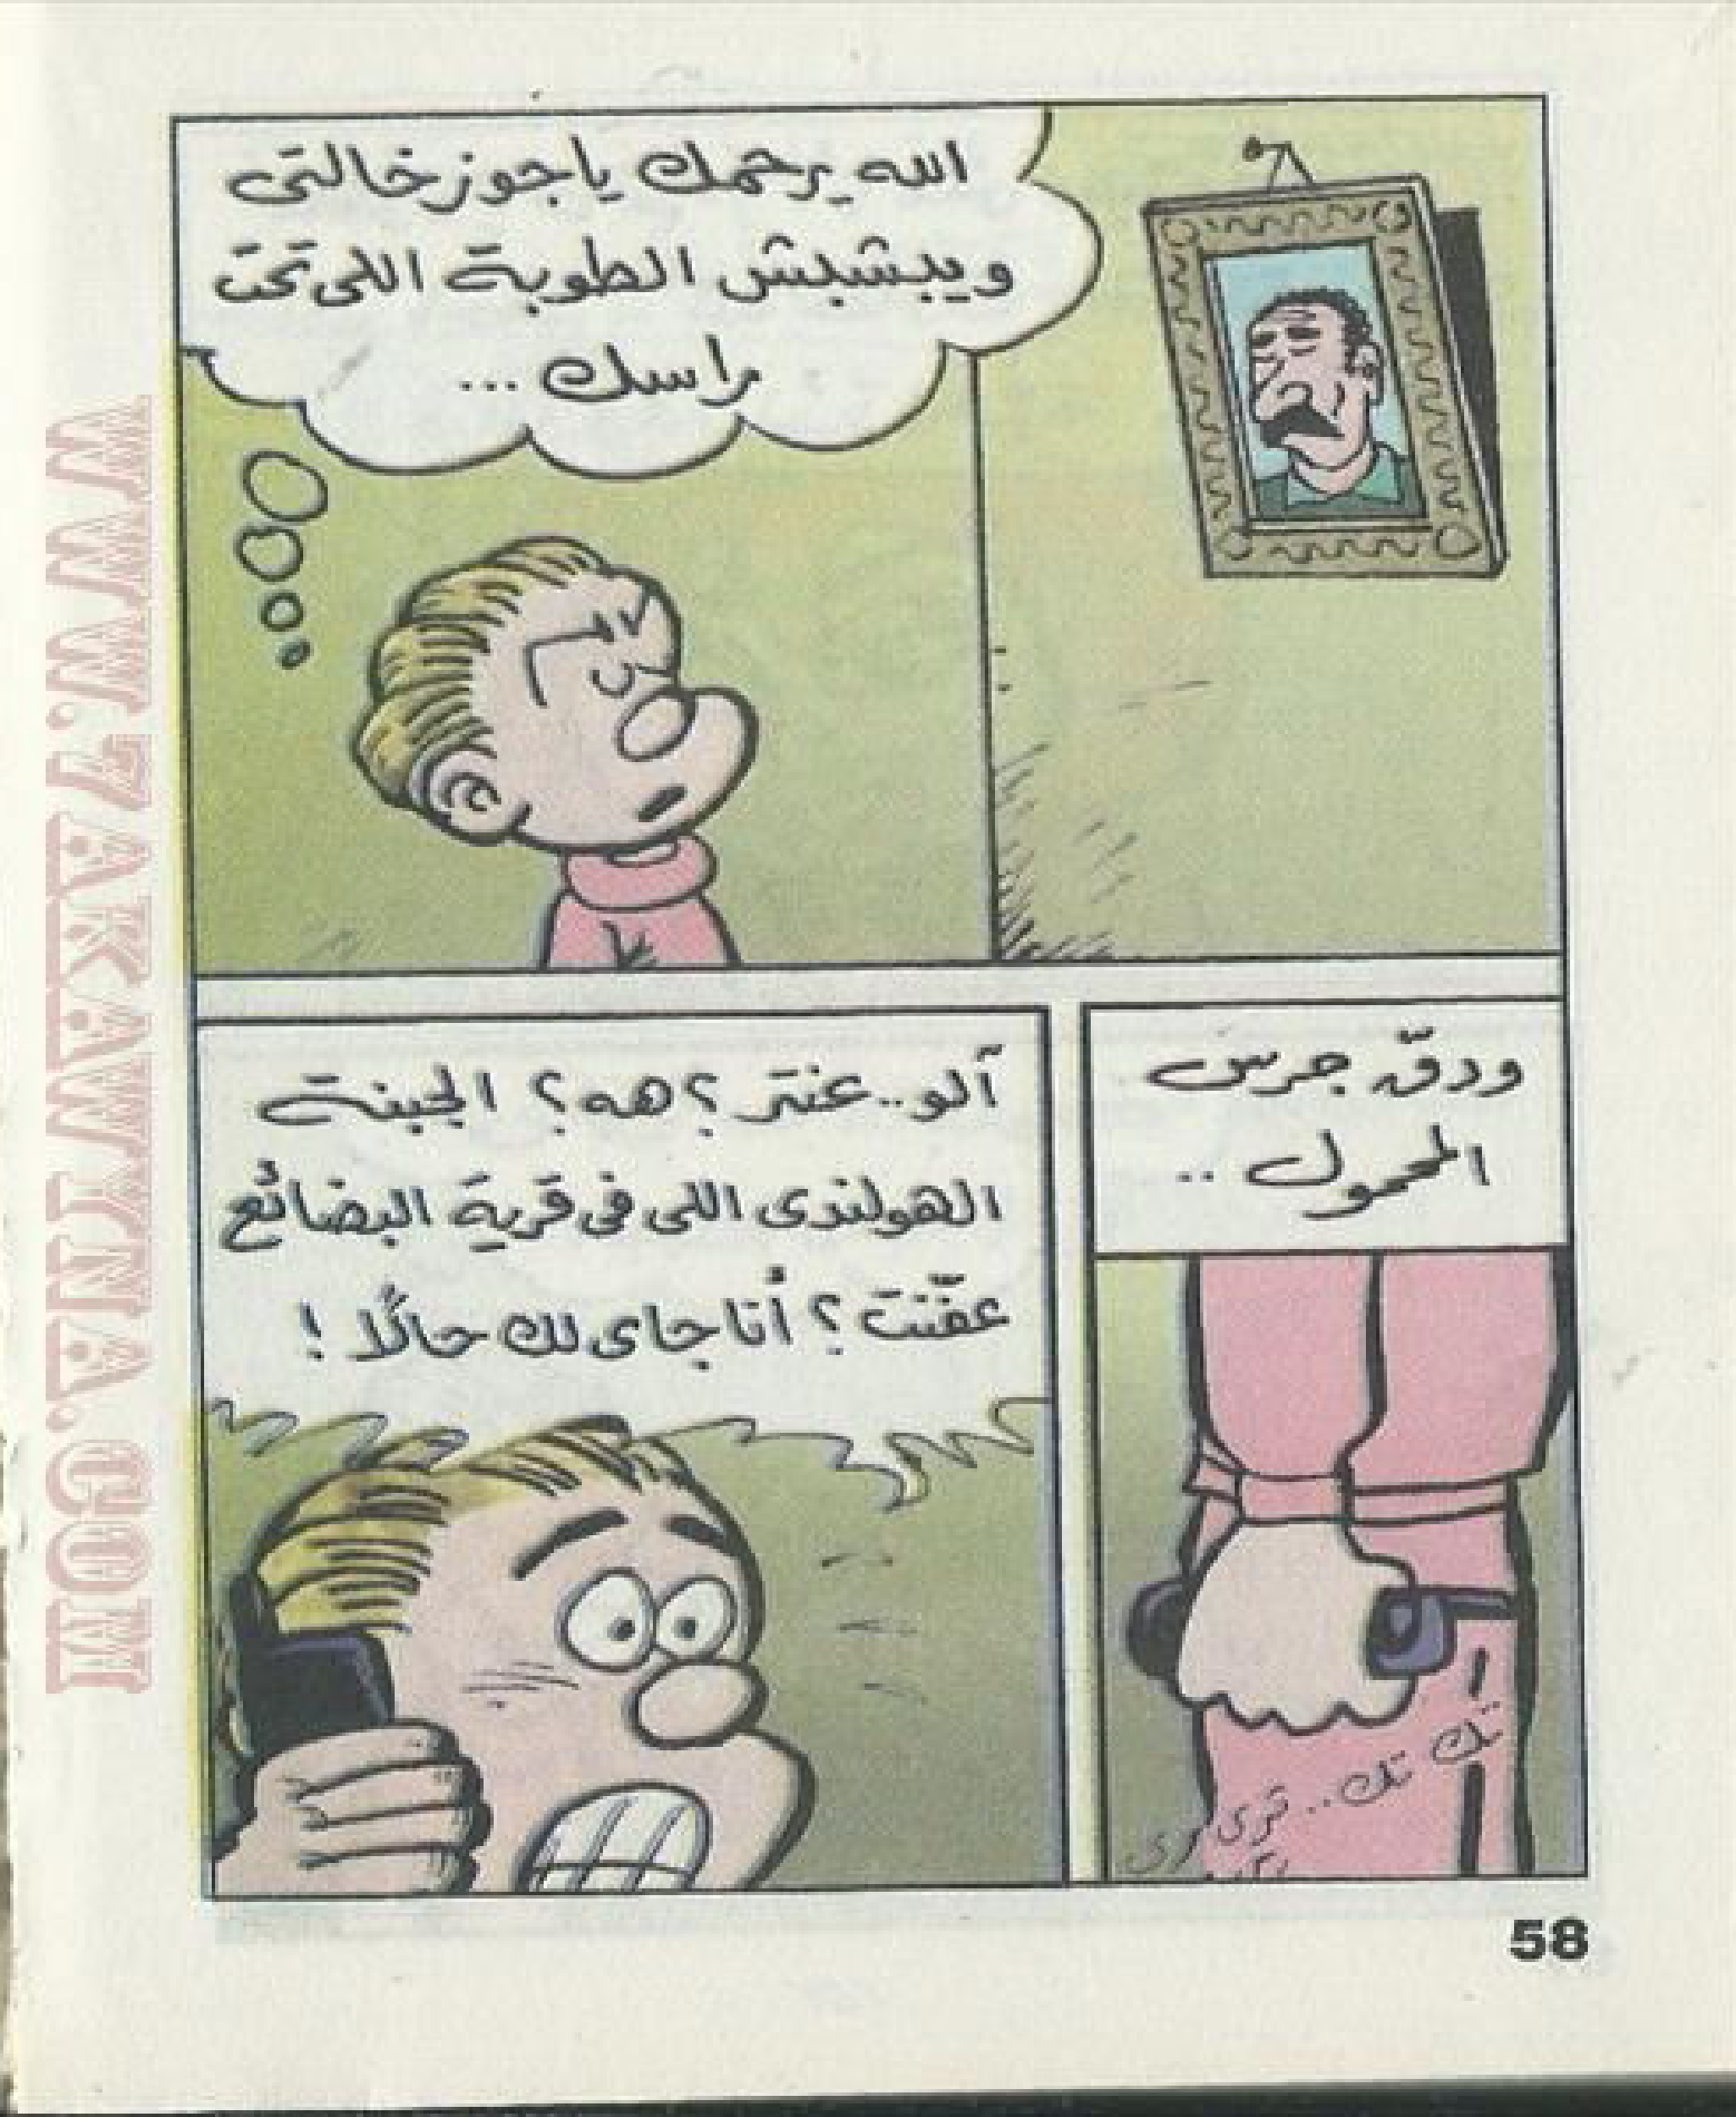 الله يرحمك يا جوز خالتى
ويبشبش الطوبة اللى تحت
راسك ...
ودقّ جرس
المحمول ..
تك تك .. ترى رى
آلو .. عنتر ؟ هه ؟ الجبنة
الهولندى اللى فى قرية البضائع
عفّنت ؟ أنا جاى لك حالًا !
58
WWW.7AKAWITNA.COM